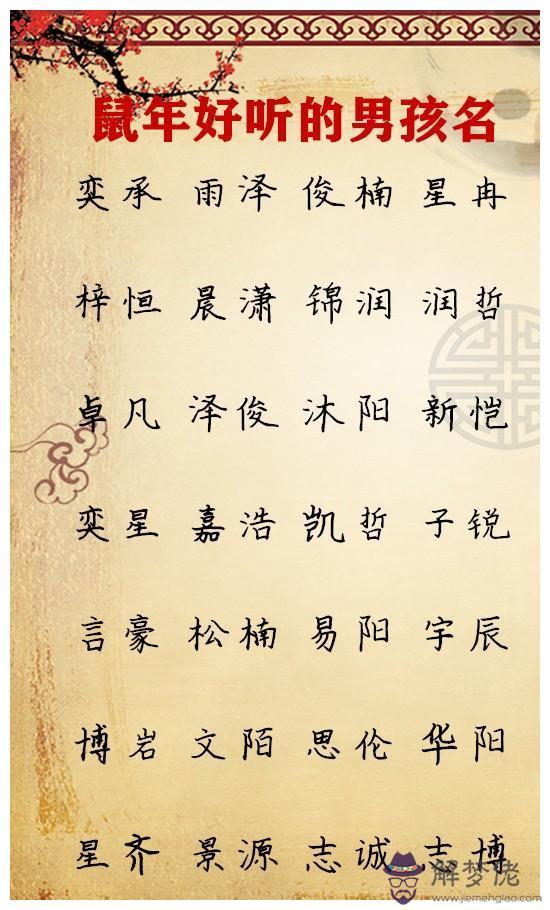 鼠年好听的男孩名
奕承 雨泽 俊楠 星冉
梓恒 晨潇 锦润 润哲
卓凡 泽俊 沐阳 新恺
奕星 嘉浩 凯哲 子锐
言豪 松楠 易阳 宇辰
博岩 文陌 思伦 华阳
星齐 景源 志诚 志博
解梦佬
www.jiemenglao.com